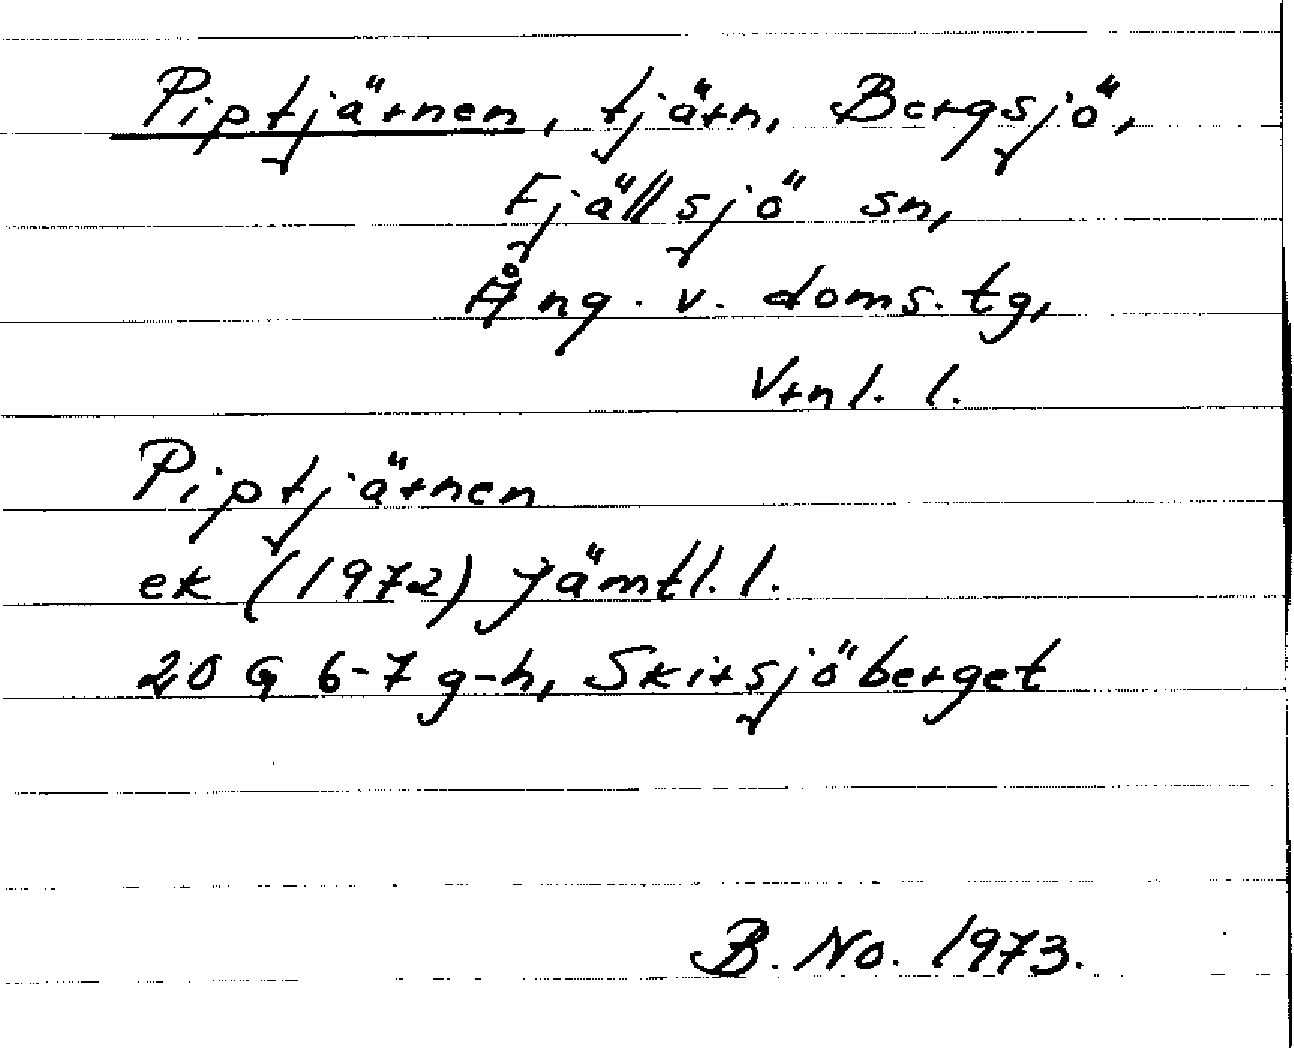 Piptjärnen, tjärn, Bergsjö,
Fjällsjö sn,
Ång. v. doms. tg,
Vrnl. l.
Piptjärnen
ek (1972) Jämtl. l.
20 G 6-7 g-h, Skirsjöberget
B. No. 1973.